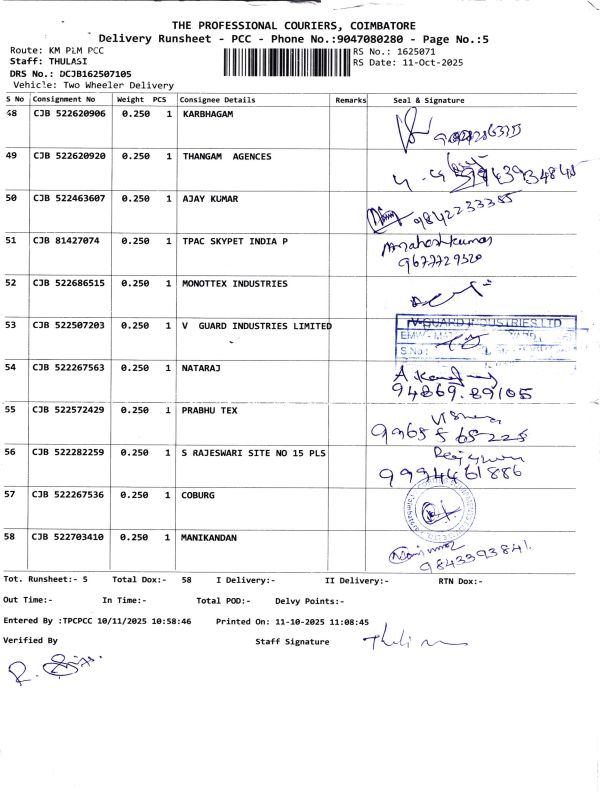 THE PROFESSIONAL COURIERS, COIMBATORE
Delivery Runsheet - PCC - Phone No.:9047080280 - Page No.:5
Route: KM PLM PCC RS No.: 1625071
Staff: THULASI RS Date: 11-Oct-2025
DRS No.: DCJB162507105
Vehicle: Two Wheeler Delivery
S No Consignment No Weight PCS Consignee Details Remarks Seal & Signature
48 CJB 522620906 0.250 1 KARBHAGAM
49 CJB 522620920 0.250 1 THANGAM AGENCES
50 CJB 522463607 0.250 1 AJAY KUMAR 9842233385
51 CJB 81427074 0.250 1 TPAC SKYPET INDIA P
9677729320
52 CJB 522686515 0.250 1 MONOTTEX INDUSTRIES
53 CJB 522507203 0.250 1 V GUARD INDUSTRIES LIMITED V-GUARD INDUSTRIES LTD
S.No :
54 CJB 522267563 0.250 1 NATARAJ
94869.89105
55 CJB 522572429 0.250 1 PRABHU TEX
9965565225
56 CJB 522282259 0.250 1 S RAJESWARI SITE NO 15 PLS
9994461886
57 CJB 522267536 0.250 1 COBURG
58 CJB 522703410 0.250 1 MANIKANDAN
9843393841
Tot. Runsheet:- 5 Total Dox:- 58 I Delivery:- II Delivery:- RTN Dox:-
Out Time:- In Time:- Total POD:- Delvy Points:-
Entered By :TPCPCC 10/11/2025 10:58:46 Printed On: 11-10-2025 11:08:45
Verified By Staff Signature